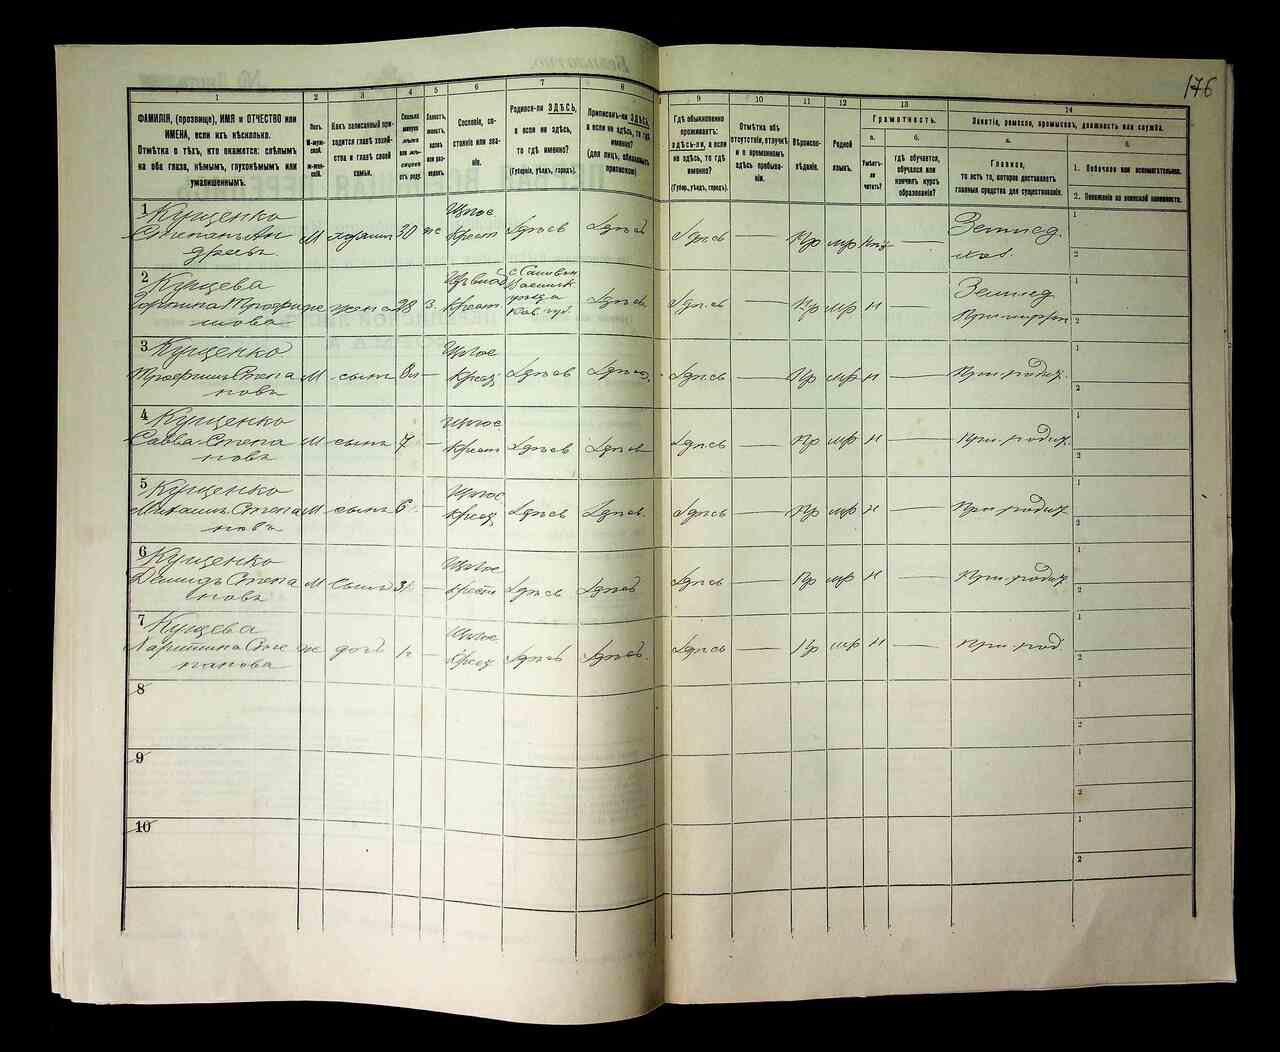 176
1
2
3
4
5
6
7
8
9
10
11
12
13
14
ФАМИЛІЯ, (прозвище), ИМЯ и ОТЧЕСТВО или
ИМЕНА, если ихъ нѣсколько.
Отмѣтка о тѣхъ, кто окажется: слѣпымъ
на оба глаза, нѣмымъ, глухонѣмымъ или
умалишеннымъ.
Полъ.
М-муж-
ской.
Ж-жен-
скій.
Какъ записанный при-
ходится главѣ хозяй-
ства и главѣ своей
семьи.
Сколько
минуло
лѣтъ
или мѣ-
сяцевъ
отъ роду.
Холостъ,
женатъ,
вдовъ
или раз-
веденъ.
Сословіе, со-
стояніе или зва-
ніе.
Родился-ли ЗДѢСЬ,
а если не здѣсь,
то гдѣ именно?
(Губернія, уѣздъ, городъ).
Приписанъ-ли ЗДѢСЬ,
а если не здѣсь, то гдѣ
именно?
(для лицъ, обязанныхъ
припискою)
Гдѣ обыкновенно
проживаетъ:
здѣсь-ли, а если
не здѣсь, то гдѣ
именно?
(Губер., уѣздъ, городъ).
Отмѣтка объ
отсутствіи, отлучкѣ
и о временномъ
здѣсь пребыва-
ніи.
Вѣроиспо-
вѣданіе.
Родной
языкъ.
Грамотность.
а.
б.
Умѣетъ-
ли
читать?
гдѣ обучается,
обучался или
кончилъ курсъ
образованія?
Занятіе, ремесло, промыселъ, должность или служба.
а.
б.
Главное,
то есть то, которое доставляетъ
главныя средства для существованія.
1. Побочное или вспомогательное.
2. Положеніе по воинской повинности.
1
Кущенко Степанъ Ан
дреевъ.
М хозяинъ 30 же Крест Здѣсь Здѣсь Здѣсь — Пр мр
Землед.
хоз.
1
2
2
Кущева
М Трофи
мова
же жена 28 З. Крест
Здѣсь Здѣсь — Пр мр н
Землед
1
2
3
Кущенко
Трофимъ Степа
новъ
М сынъ — Крест Здѣсь Здѣсь Здѣсь — Пр мр н — При родит.
1
2
4
Кущенко
Савва Степа
новъ
М сынъ 7 — Крест Здѣсь Здѣсь Здѣсь — Пр мр н — При родит.
1
2
5
Кущенко
Михаилъ Степа
новъ
М сынъ 6 — Крест Здѣсь Здѣсь Здѣсь — Пр мр н — При родит
1
2
6
Кущенко
Демидъ Степа
новъ
М сынъ — Крест Здѣсь Здѣсь Здѣсь — Пр мр н — При родит
1
2
7
Кущева
Харитина Сте
панова
же дочь — Крест Здѣсь Здѣсь Здѣсь — Пр мр н — При род.
1
2
8
1
2
9
1
2
10
1
2